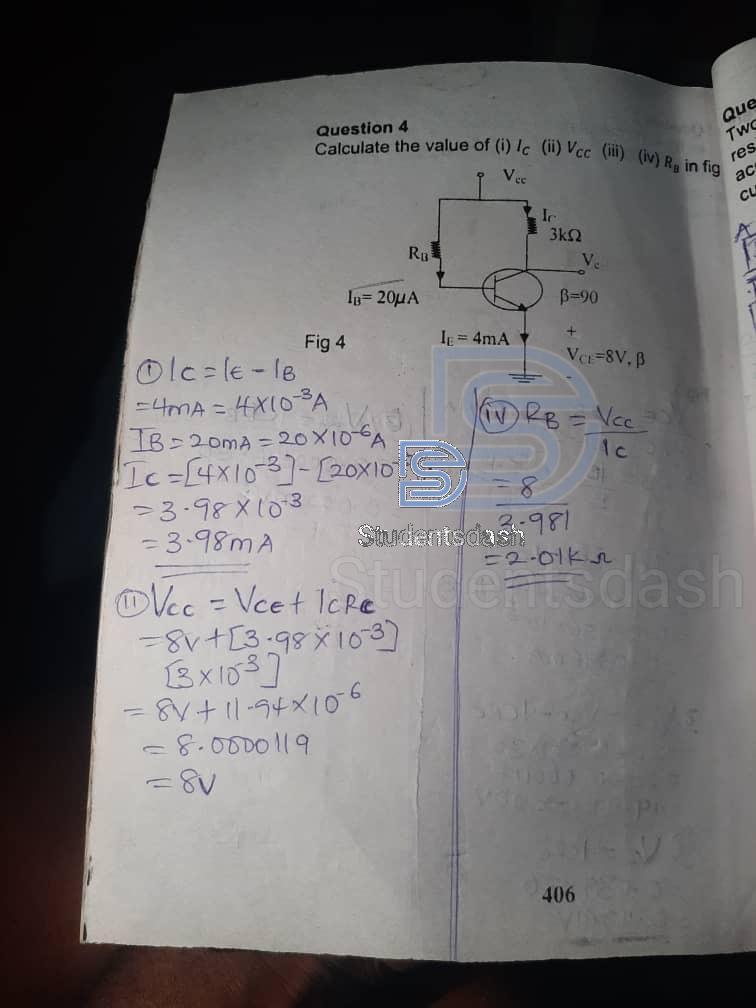 Question 4
Calculate the value of (i) IC (ii) VCC (iii) (iv) RB in fig
Vcc
IC
3kΩ
RB
Vc
IB= 20μA
β=90
+
IE = 4mA
VCE=8V, β
-
Fig 4
(i) IC = IE - IB
=4mA = 4X10⁻³A
IB = 20mA = 20 X10⁻⁶A
IC =[4X10⁻³] - [20X10⁻
= 3.98 X10⁻³
= 3.98mA
(ii) VCC = VCE + ICRC
=8V+[3.98X10⁻³]
[3X10⁻³]
= 8V + 11.94X10⁻⁶
= 8.0000119
= 8V
(iv) RB = VCC
IC
= 8
3.981
=2.01KΩ
Studentsdash
Studentsdash
406
Que
Two
res
ac
cu